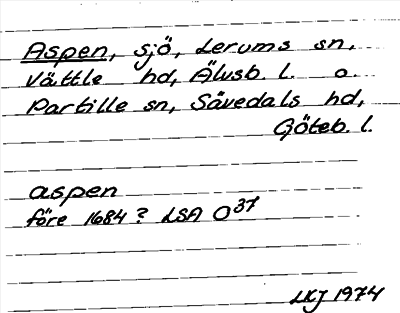 Aspen, sjö, Lerums sn,
Vättle hd, Älvsb. l. o.
Partille sn, Sävedals hd,
Göteb. l.
aspen
före 1684? LSA O37
LKJ 1974